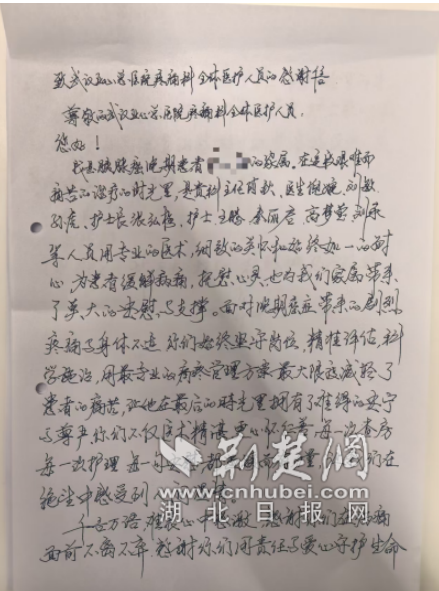 致武汉亚心总医院疼痛科全体医护人员的感谢信
尊敬的武汉亚心总医院疼痛科全体医护人员,
您好!
我是胰腺癌晚期患者 的家属,在这段艰难而
痛苦的治疗的时光里,是贵科主任肖秋、医生 刘敏
护士长张 、护士王 秦 高梦莹 刘
等人员用专业的医术,细致的关怀和始终如一的耐
心,为患者缓解病痛,抚慰心灵,也为我们家属带来
了莫大的安慰与支撑。面对晚期癌症带来的剧烈
疼痛与身体不适 你们始终坚守岗位,精准评估,科
学施治,用最专业的疼痛管理方案最大限度减轻了
患者的病苦,让他在最后的时光里拥有了难得的安宁
与尊严 你们不仅医术精湛 更心怀仁善 每一次查房
每一次护理 每一 们在
绝望中感受到
千言万语 难表心中感激 感谢你们在病痛
面前不离不弃 感谢你们用责任与爱心守护生命
荆楚网
www.cnhubei.com
湖北日报网